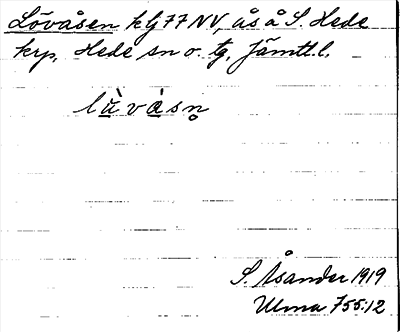 Lövåsen klj 77 NV, ås å S. Hede
krp, Hede sn o. tg, Jämtl. l.
làvàsn̥
S. Åsander 1919
Ulma 755:12